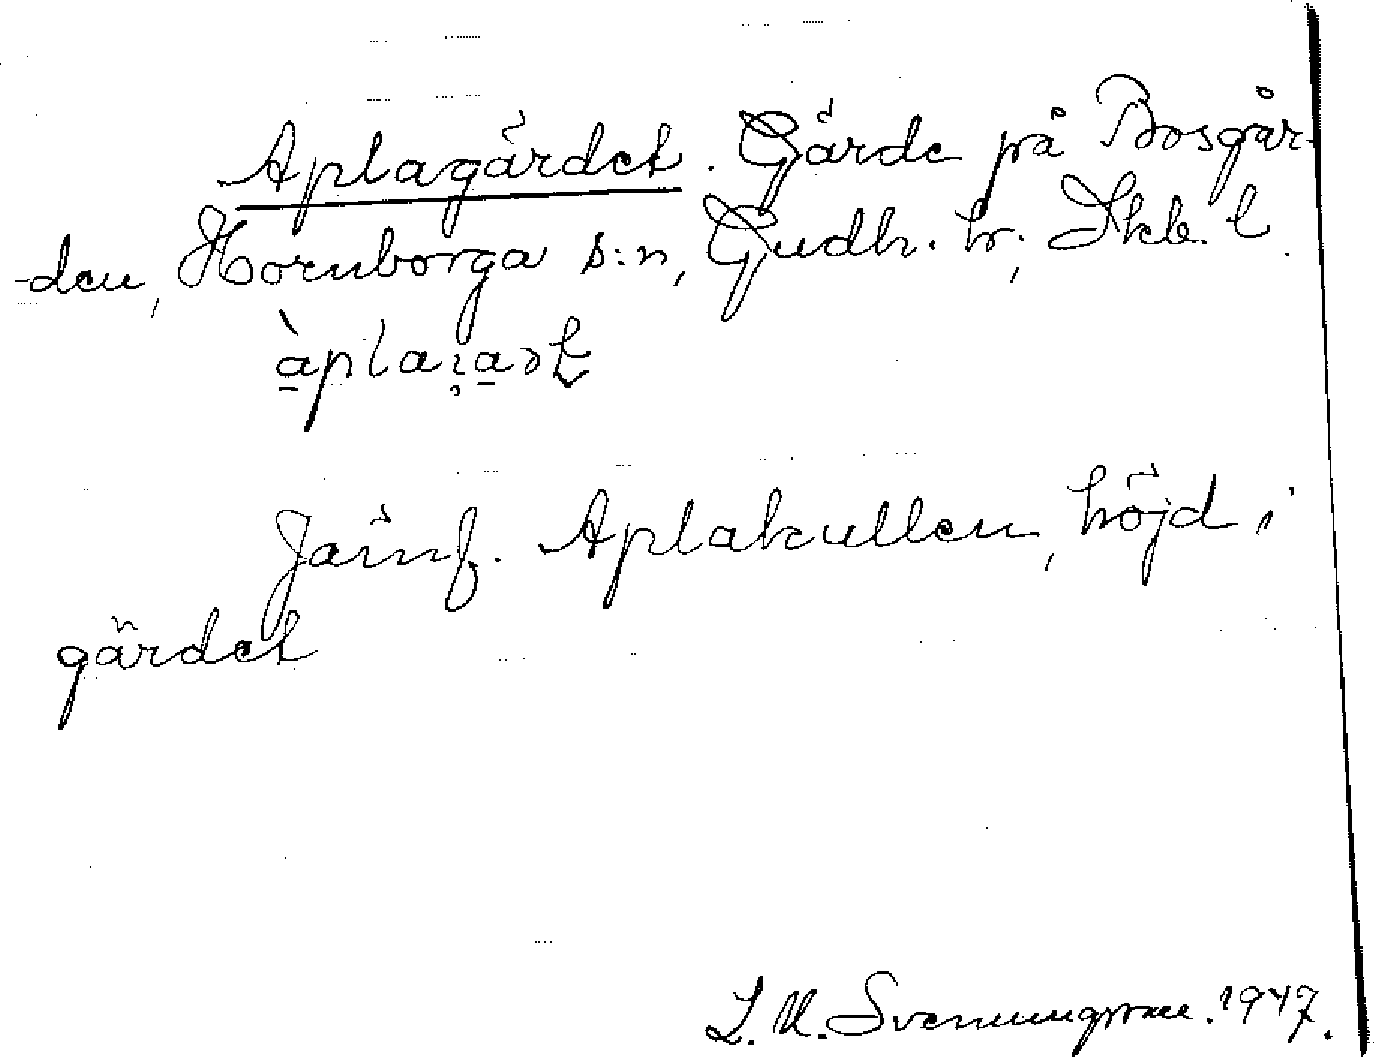 Aplagärdet. Gärde på Bosgår-
den, Hornborga s:n, Gudh. hr, Skb. l.
Jämf. Aplakullen, höjd i
gärdet
L. U. Svenungsson. 1947.